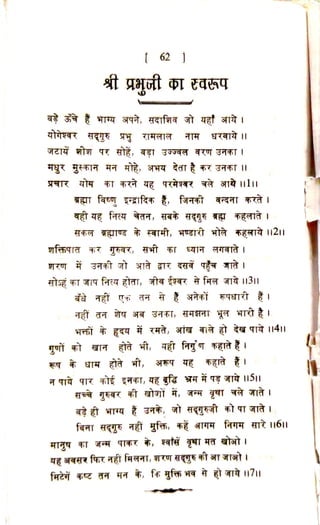 [ 62 ]
श्री प्रभुजी का स्वरूप
बड़े ऊंचे हैं भाग्य अपने, सदाशिव जो यहाँ आये ।
योगेश्वर सद्गुरु प्रभु रामलाल नाम धरवाये ॥
जटायें शीश पर सोहें, बड़ा उज्ज्वल वरण उनका ।
मधुर मुस्कान मन मोहे, अभय देता है कर उनका ॥
प्रचार योग का करने यह परमेश्वर चले आये ॥1॥
ब्रह्मा विष्णु इन्द्रादिक हैं, जिनकी वन्दना करते ।
वही यह नित्य चेतन, सबके सद्गुरु ब्रह्म कहलाते ।
सकल ब्रह्माण्ड के स्वामी, भण्डारी भोले कहलाये ॥2॥
शक्तिपात कर गुरुवर, सभी का ध्यान लगवाते ।
शरण में उनकी जो आते द्वार दसवें पहुँच जाते ।
सोऽहं का जाप नित्य होता, जीव ईश्वर से मिल जाये ॥3॥
बंधे नहीं एक तन से हैं अनेकों रूपधारी हैं ।
नहीं तन शेष अब उनका, समझना भूल भारी है ।
भक्तों के हृदय में रमते, आंख वाले ही देख पाये ॥4॥
गुणों की खान होते भी, यही निर्गुण कहाते हैं ।
रूप के धाम होते भी, अरूप यह कहाते हैं ।
न पाये पार कोई इनका, यह बुद्धि भ्रम में पड़ जाये ॥5॥
सच्चे गुरुवर की खोजों में, जन्म वृथा चले जाते ।
बड़े ही भाग्य हैं उनके, जो सद्गुरुजी को पा जाते ।
बिना सद्गुरु नहीं मुक्ति, कहें आगम निगम सारे ॥6॥
मानुष का जन्म पाकर के, श्वाँसें वृथा मत खोओ ।
यह अवसर फिर नहीं मिलना, शरण सद्गुरु की आ जाओ ।
मिटेंगे कष्ट तन मन के, कि मुक्ति भव से हो जाये ॥7॥